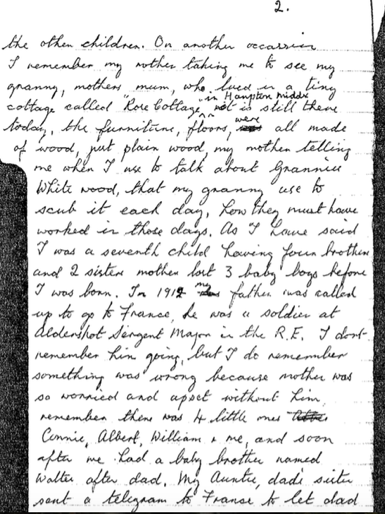 2.
the other children. On another occassion
I remember my mother taking me to see my
granny, mothers mum, who lived in a tiny
in Hampton middx
cottage called "Rose Cottage, it is still there
today, the furniture, floors, were all made
of wood, just plain wood, my mother telling
me when I use to talk about Grannies
White wood, that my granny use to
scub it each day, how they must have
worked in those days. As I have said
I was a seventh child having four brothers
and 2 sisters mother lost 3 baby boys before
I was born. In 1912 my father was called
up to go to France, he was a soldier at
Aldershot Sergent Major in the R.E. I dont
remember him going, but I do remember
something was wrong because mother was
so worried and upset without him,
remember there was 4 little ones
Connie, Albert, William & me, and soon
after me had a baby brother named
Walter after dad. My Auntie, dad's sister
sent a telegram to France to let dad